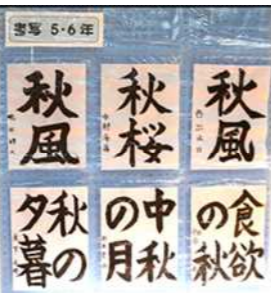 書写 5・6年
秋風
秋桜
秋風
秋の
夕暮
中秋
の月
食欲
の秋